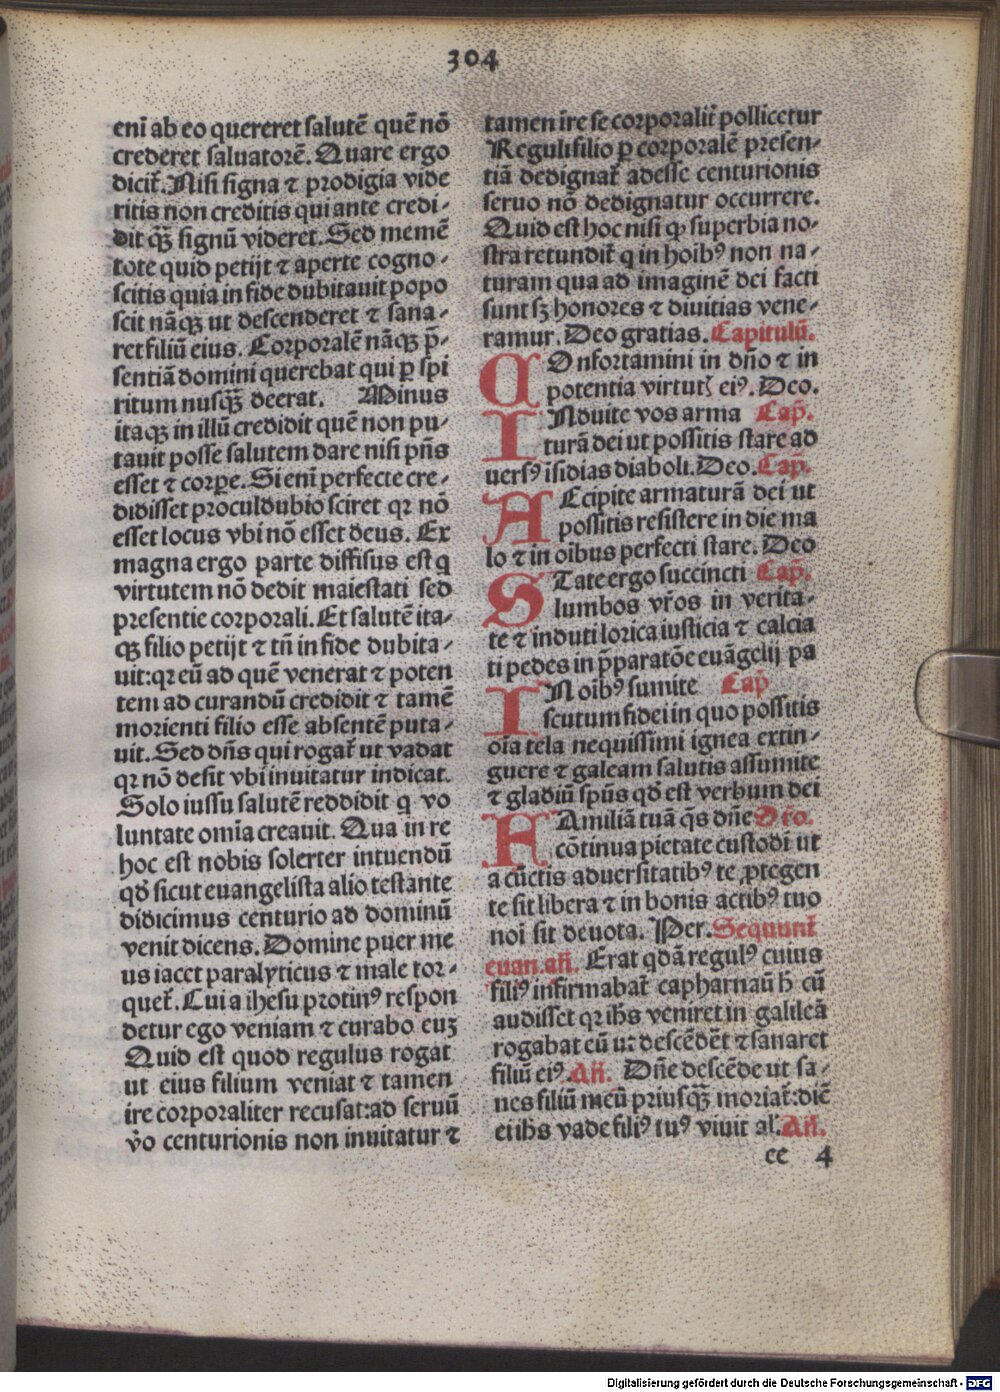 304
enī ab eo quereret salutē quē nō
crederet saluatorē. Quare ergo
dicit̄. Nisi signa ⁊ prodigia vide
ritis non creditis qui ante credi-
dit qꝫ̄ signū videret. Sed memē
tote quid petijt ⁊ aperte cogno-
scitis quia in fide dubitauit popo
scit nāqꝫ ut descenderet ⁊ sana-
ret filiū eius. Corporalē nāqꝫ p̄-
sentiā domini querebat qui ꝑ spi
ritum nusqꝫ̄ deerat. Minus
itaqꝫ in illū credidit quē non pu-
tauit posse salutem dare nisi pn̄s
esset ⁊ corꝑe. Si enī perfecte cre-
didisset proculdubio sciret qꝛ nō
esset locus vbi nō esset deus. Ex
magna ergo parte diffisus est q
virtutem nō dedit maiestati sed
presentie corporali. Et salutē ita-
qꝫ filio petijt ⁊ tn̄ in fide dubita-
uit: qꝛ eū ad quē venerat ⁊ poten
tem ad curandū credidit ⁊ tamē
morienti filio esse absentē puta-
uit. Sed dn̄s qui rogat̄ ut vadat
qꝛ nō desit vbi inuitatur indicat.
Solo iussu salutē reddidit q vo
luntate omīa creauit. Qua in re
hoc est nobis solerter intuendū
qd̄ sicut euangelista alio testante
didicimus centurio ad dominū
venit dicens. Domine puer me
us iacet paralyticus ⁊ male tor-
quet̄. Cui a ihesu protinꝰ respon
detur ego veniam ⁊ curabo euꝫ
Quid est quod regulus rogat
ut eius filium veniat ⁊ tamen
ire corporaliter recusat: ad seruū
v̄o centurionis non inuitatur ⁊
tamen ire se corporalit̄ pollicetur
Reguli filio ꝑ corporalē presen-
tiā dedignat̄ adesse centurionis
seruo nō dedignatur occurrere.
Quid est hoc nisi ꝙ superbia no-
stra retundit̄ q in hoibꝰ non na-
turam qua ad imaginē dei facti
sunt sꝫ honores ⁊ diuitias vene-
ramur. Deo gratias. Capitulū.
COnfortamini in dn̄o ⁊ in
potentia virtutꝭ eiꝰ. Deo.
INduite vos arma Cap̄.
turā dei ut possitis stare ad
uersꝰ īsidias diaboli. Deo. Cap̄.
AEcipite armaturā dei ut
possitis resistere in die ma
lo ⁊ in oībus perfecti stare. Deo
STate ergo succincti Cap̄.
lumbos vr̄os in verita-
te ⁊ induti lorica iusticia ⁊ calcia
ti pedes in p̄paratōe euāgelij pa
IN oībꝰ sumite Cap̄
scutum fidei in quo possitis
oīa tela nequissimi ignea extin-
guere ⁊ galeam salutis assumite
⁊ gladiū spūs qd̄ est verbum dei
FAmiliā tuā q̄s dn̄e Or̄o.
cōtinua pietate custodi ut
a cūctis aduersitatibꝰ te ꝓtegen
te sit libera ⁊ in bonis actibꝰ tuo
noī sit deuota. Per. Sequunt̄
euan. an̄. Erat qdā regulꝰ cuius
filiꝰ infirmabat̄ capharnaū h̄ cū
audisset qꝛ ihs̄ veniret in galileā
rogabat eū ut descēdēt ⁊ sanaret
filiū eiꝰ. An̄. Dn̄e descēde ut sa-
nes filiū meū priusqꝫ̄ moriat̄: diē
ei ihs̄ vade filiꝰ tuꝰ viuit al'. An̄.
cc 4
Digitalisierung gefördert durch die Deutsche Forschungsgemeinschaft - DFG